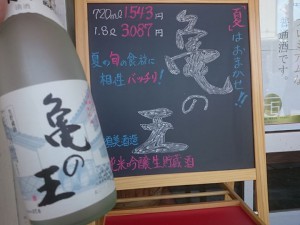 720ml 1543円
1.8ℓ 3087円
夏はおまかせ!!
夏の旬の食材に
相性バッチリ!
亀の王
純米吟醸生貯蔵酒
亀の王